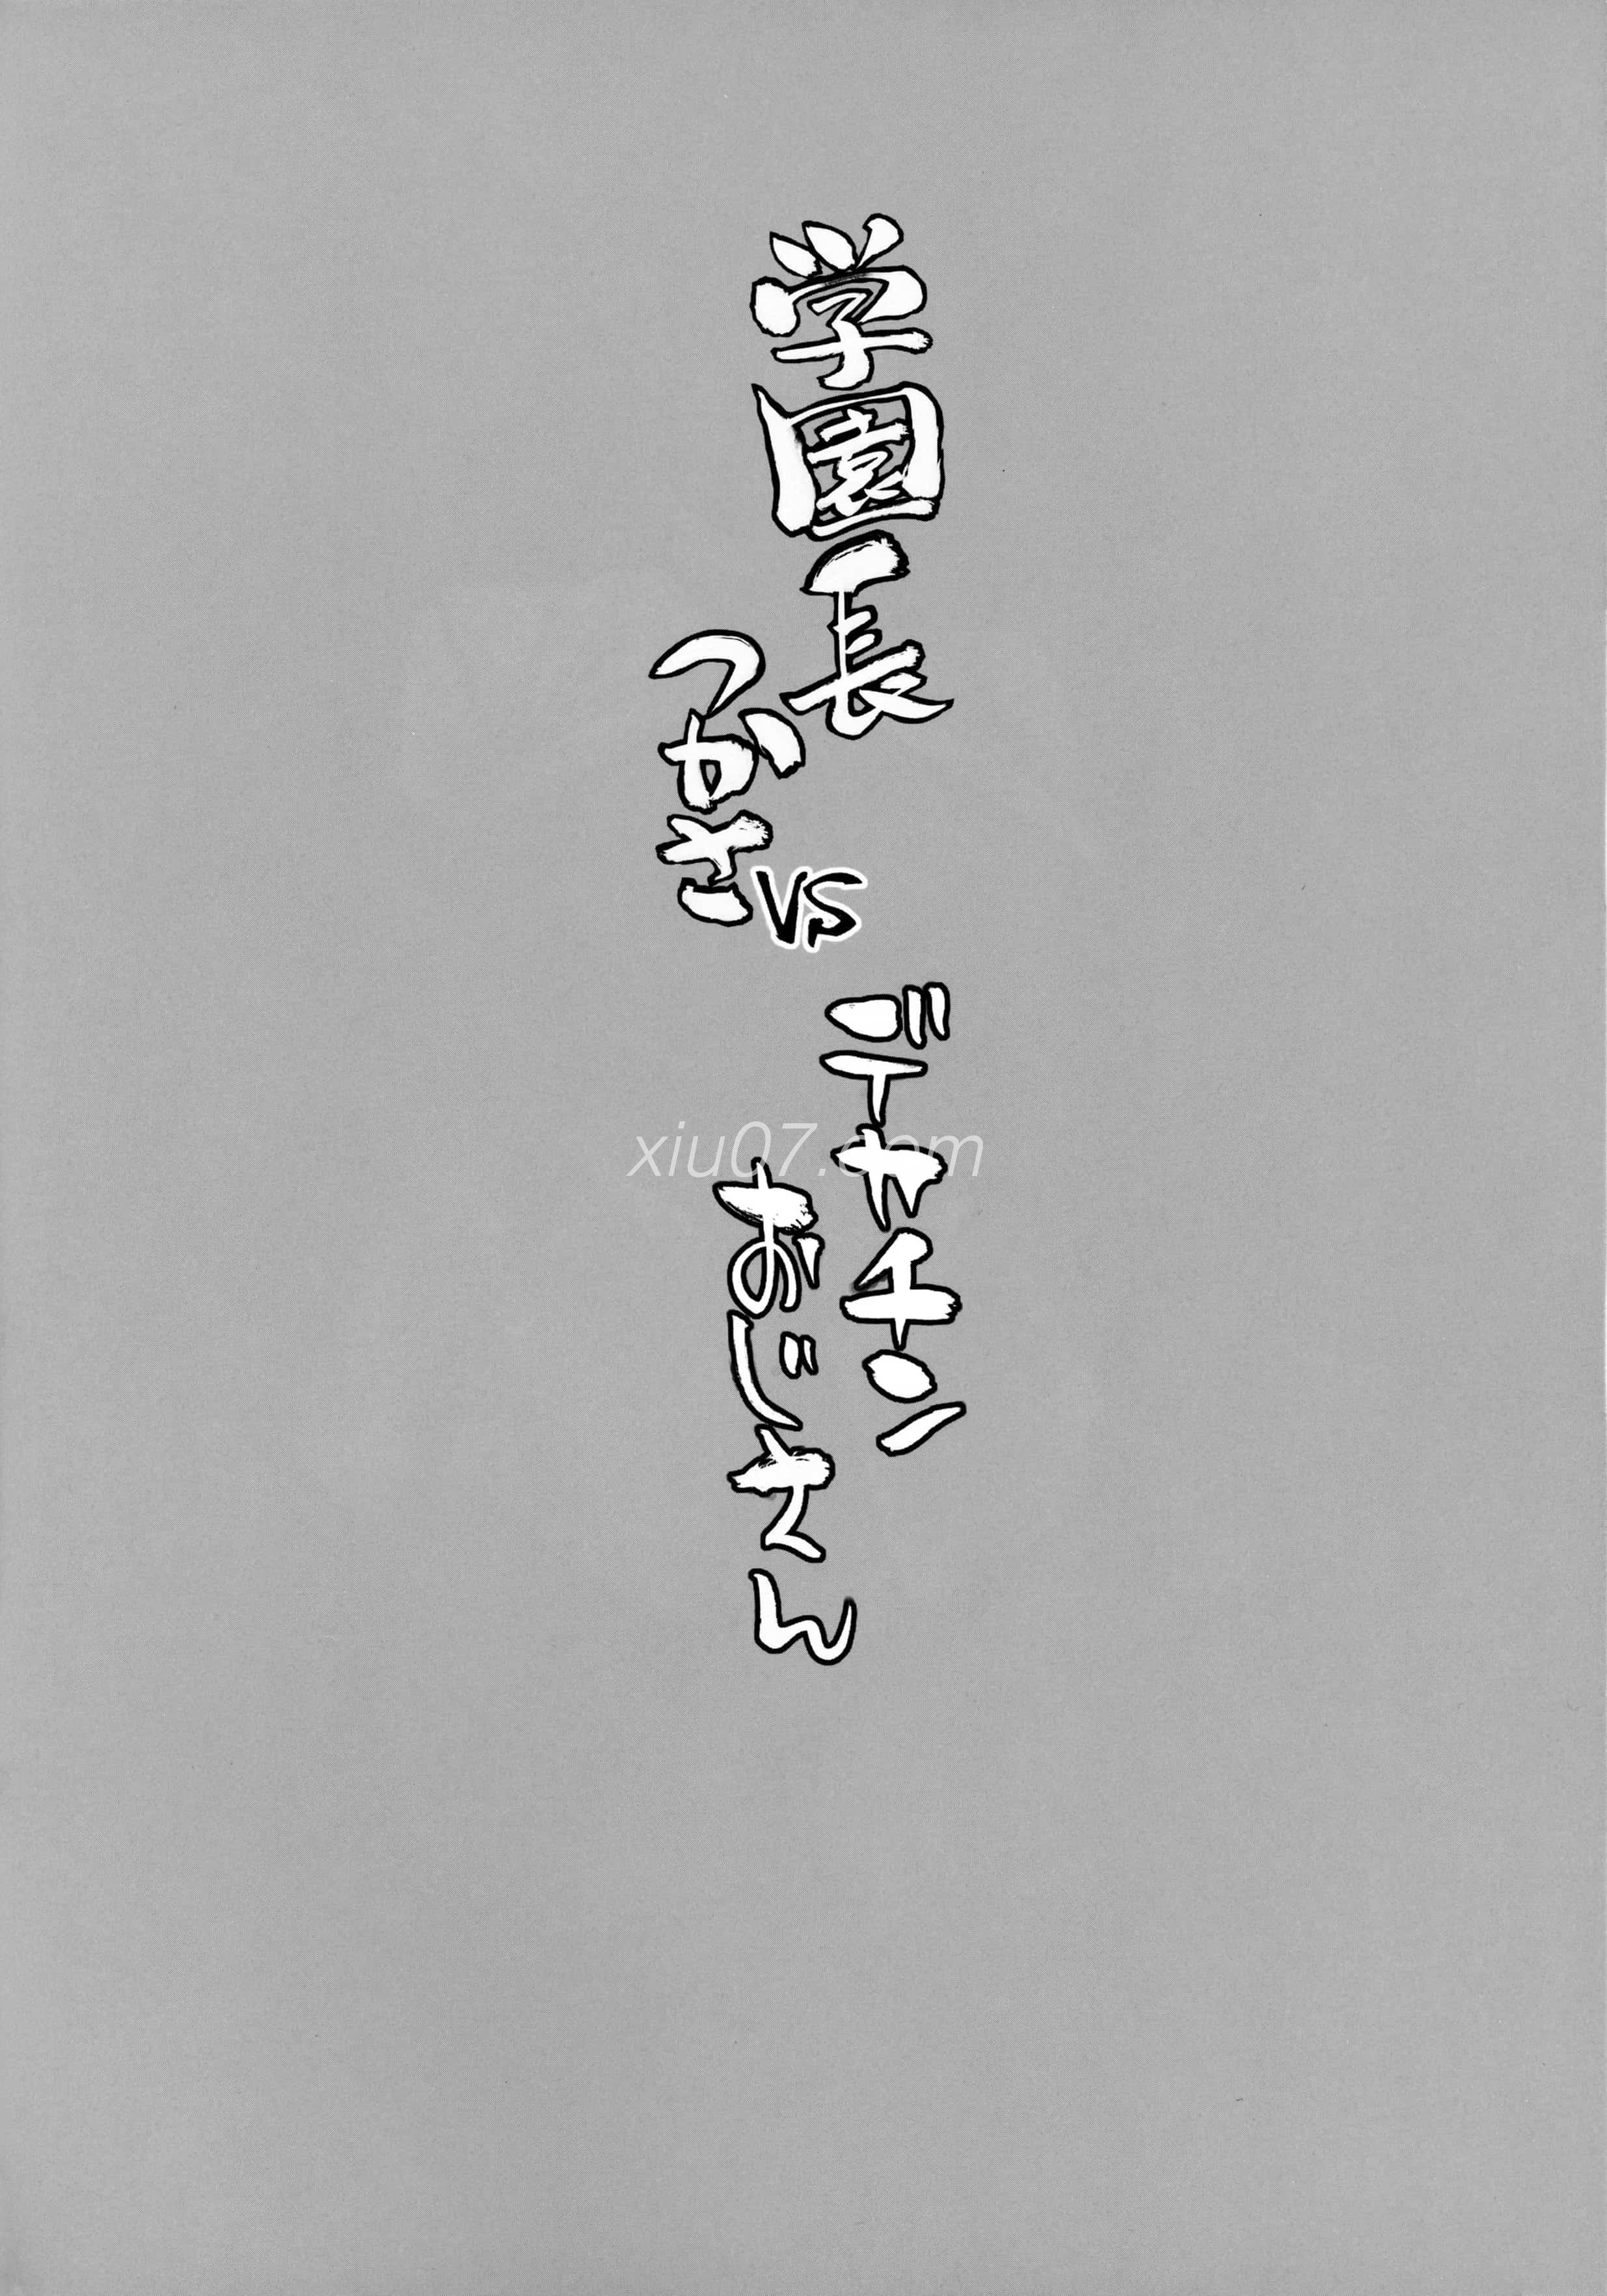 学園長
つかさ
VS
デカチン
おじさん
xiu07.com